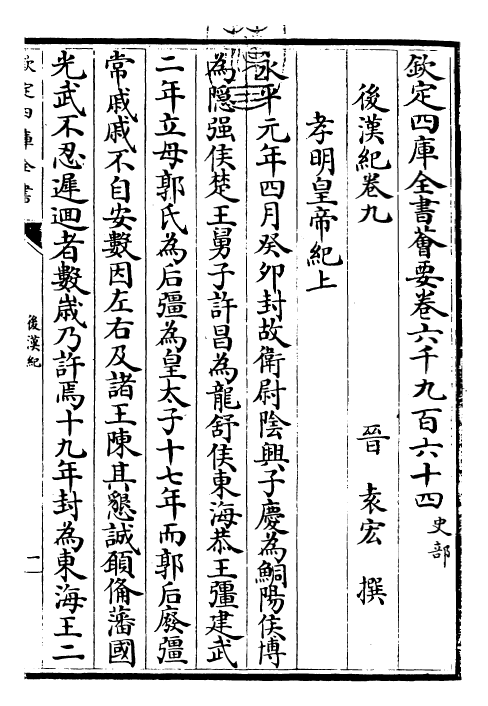 欽定四庫全書薈要卷六千九百六十四 史部
後漢紀卷九
晉 袁宏 撰
孝明皇帝紀上
永平元年四月癸卯封故衛尉陰興子慶為鮦陽侯博
為隱强侯楚王舅子許昌為龍舒侯東海恭王彊建武
二年立母郭氏為后彊為皇太子十七年而郭后廢彊
常戚戚不自安數因左右及諸王陳其懇誠願偹藩國
光武不忍遲迴者數嵗乃許焉十九年封為東海王二
欽定四庫全書
後漢紀
一